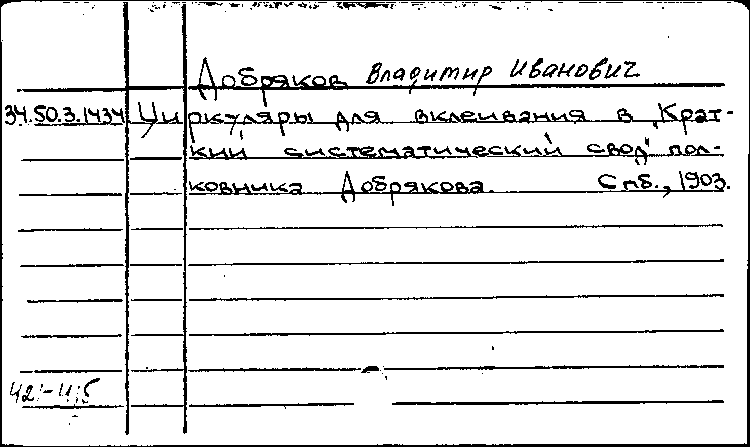 Добряков Владимир Иванович
34.50.3.1434 Циркуляры для вклеивания в „Крат-
кий систематический свод" пол-
ковника Добрякова. Спб., 1903.